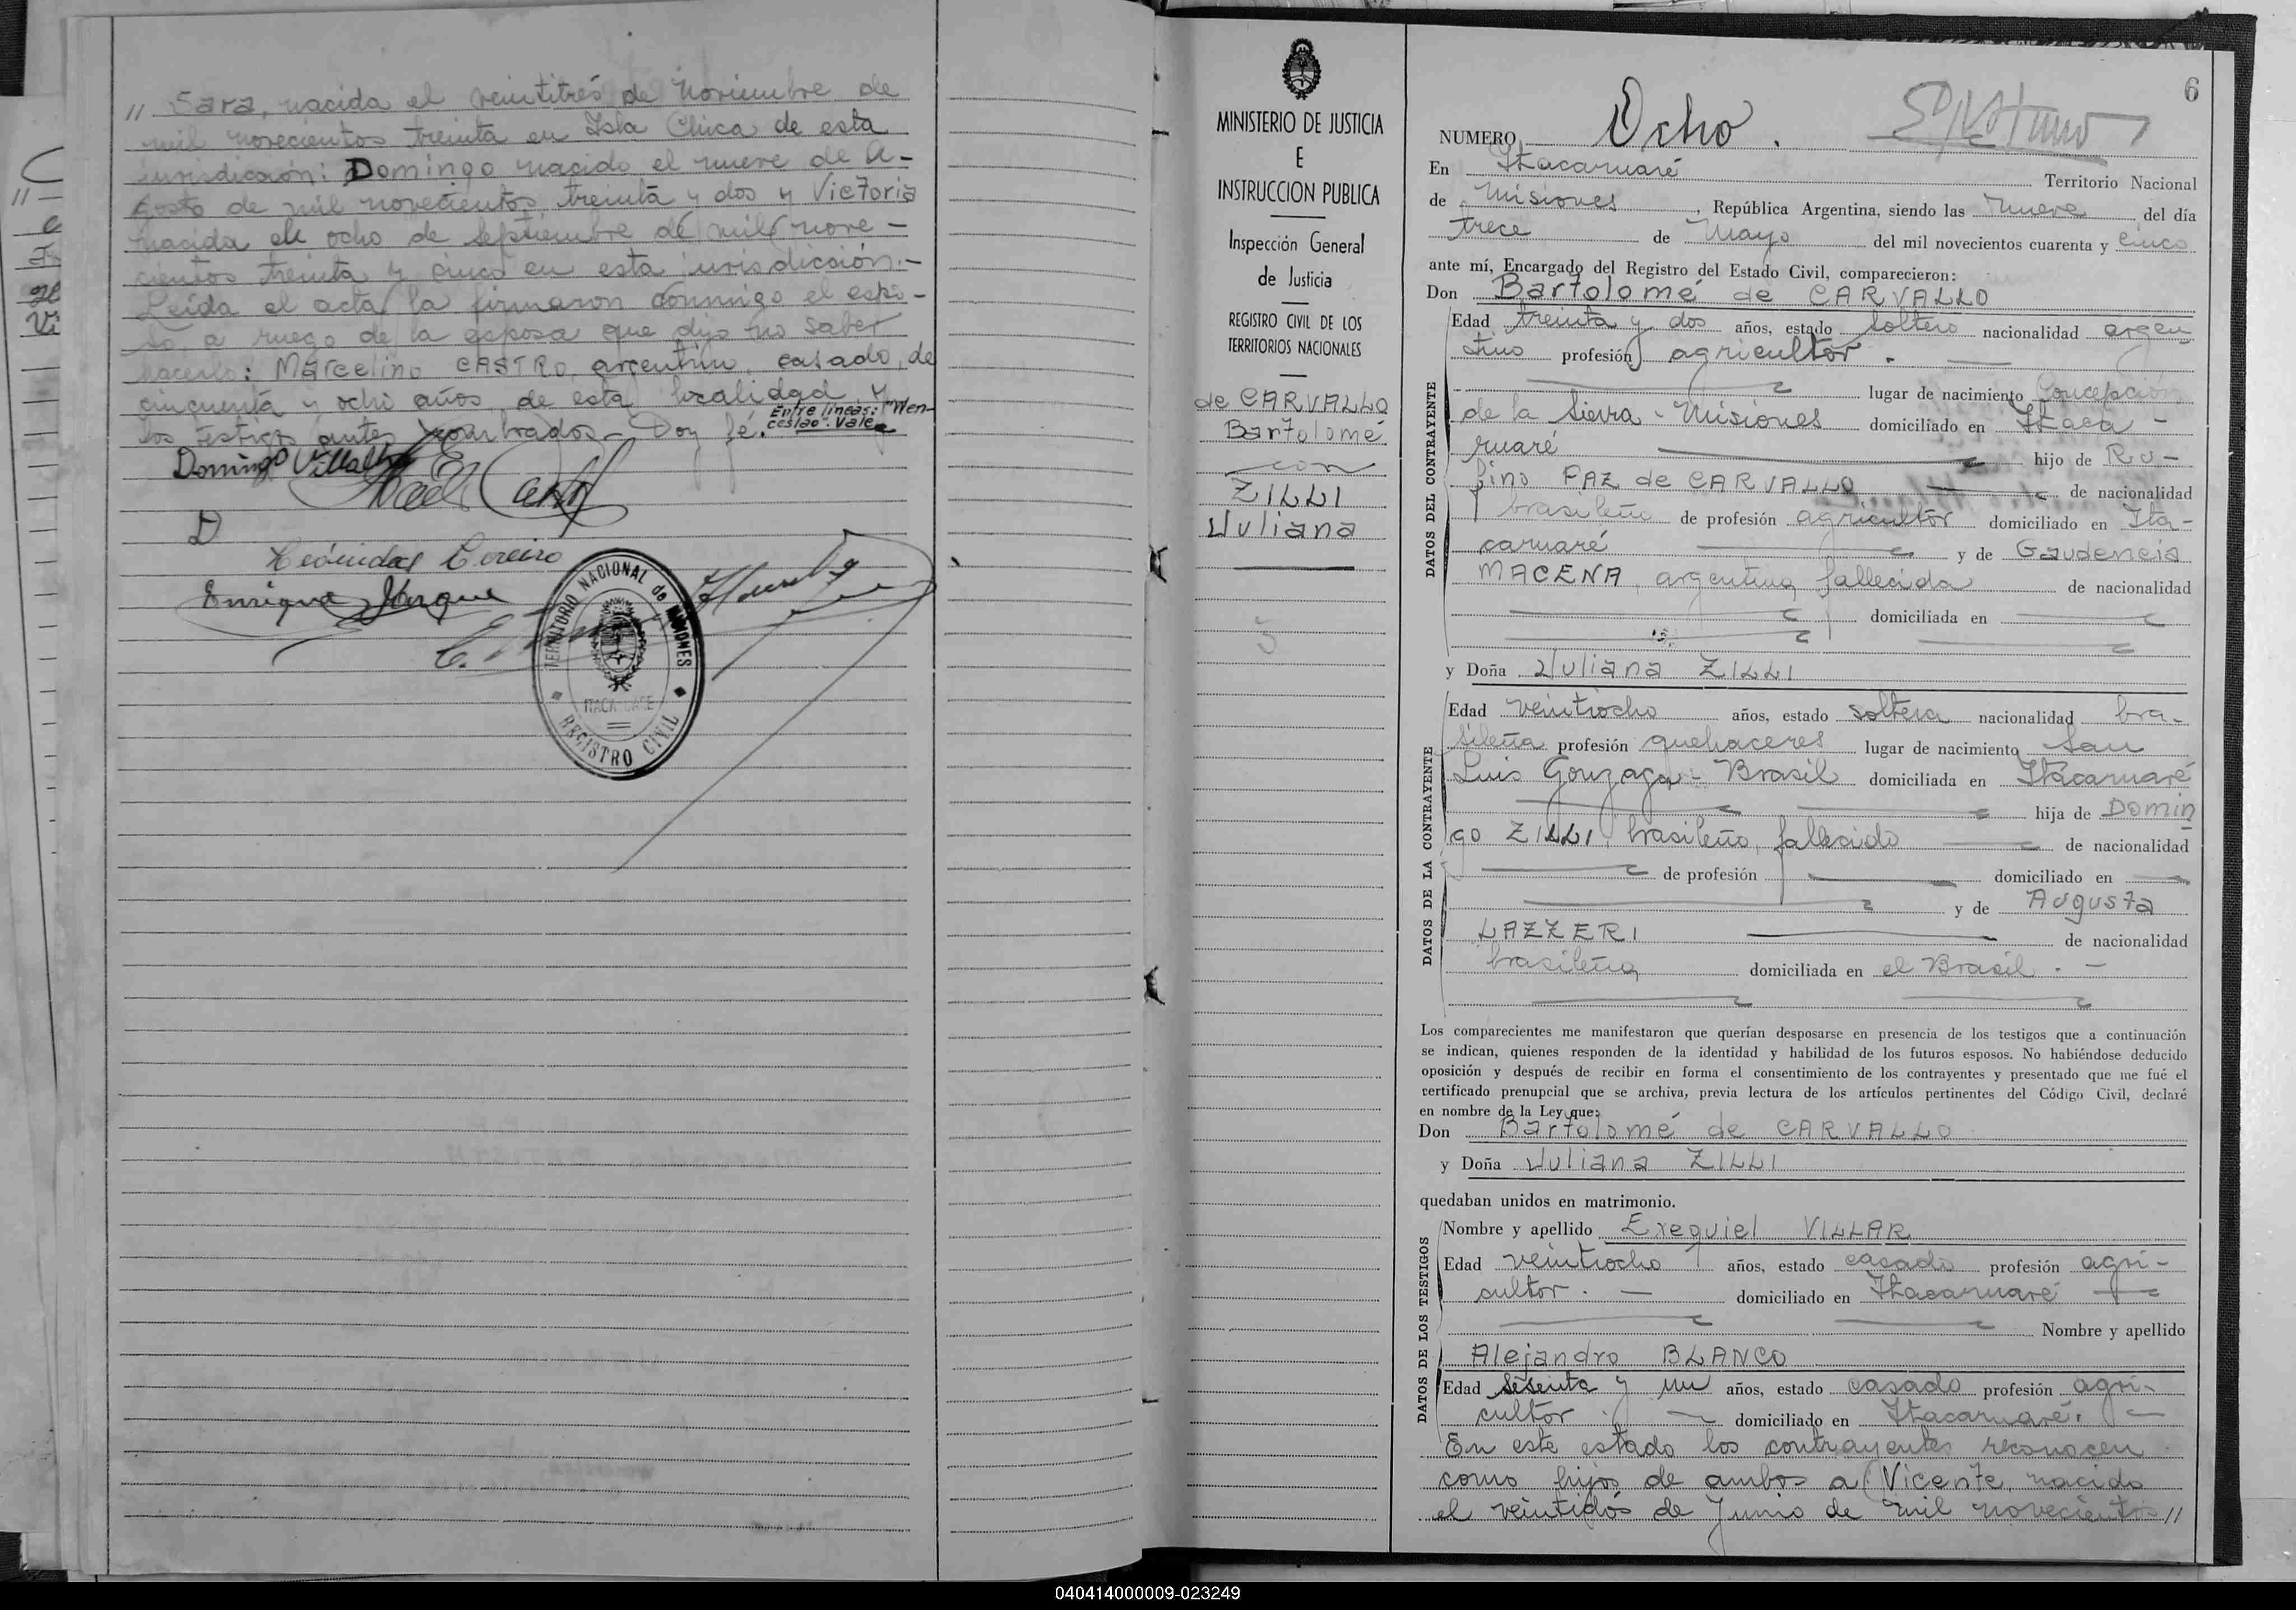 // Sara, nacida el veintitrés de Noviembre de
mil novecientos treinta en Isla Chica de esta
jurisdicción: Domingo nacido el nueve de A-
gosto de mil novecientos treinta y dos y Victoria
nacida el ocho de Septiembre de mil nove-
cientos treinta y cinco en esta jurisdicción.-
Leída el acta la firmaron conmigo el espo-
so, a ruego de la esposa que dijo no saber
hacerlo: Marcelino CASTRO, argentino, casado, de
cincuenta y ocho años, de esta localidad, y
los testigos antes nombrados.- Doy fé. Entre líneas: "Wen-
ceslao". Vale
Domingo Villalba
Leónidas
Enrique
TERRITORIO NACIONAL de MISIONES
REGISTRO CIVIL
MINISTERIO DE JUSTICIA
E
INSTRUCCION PUBLICA
Inspección General
de Justicia
REGISTRO CIVIL DE LOS
TERRITORIOS NACIONALES
de CARVALLO
Bartolomé
con
ZILLI
Juliana
6
NUMERO Ocho.
En Itacaruaré Territorio Nacional
de Misiones, República Argentina, siendo las nueve del día
trece de Mayo del mil novecientos cuarenta y cinco
ante mí, Encargado del Registro del Estado Civil, comparecieron:
Don Bartolomé de CARVALLO
DATOS DEL CONTRAYENTE
Edad treinta y dos años, estado soltero nacionalidad argen
tino profesión agricultor.
lugar de nacimiento Concepción
de la Sierra - Misiones domiciliado en Itaca-
ruaré hijo de Ru-
fino PAZ de CARVALLO de nacionalidad
brasileño de profesión agricultor domiciliado en Ita-
caruaré y de Gaudencia
MACENA, argentina, fallecida de nacionalidad
domiciliada en
y Doña Juliana ZILLI
DATOS DE LA CONTRAYENTE
Edad veintiocho años, estado soltera nacionalidad bra-
sileña profesión quehaceres lugar de nacimiento San
Luis Gonzaga - Brasil domiciliada en Itacaruaré
hija de Domin
go ZILLI, brasileño, fallecido de nacionalidad
de profesión domiciliado en
y de Augusta
LAZZERI de nacionalidad
brasileña domiciliada en el Brasil.-
Los comparecientes me manifestaron que querían desposarse en presencia de los testigos que a continuación
se indican, quienes responden de la identidad y habilidad de los futuros esposos. No habiéndose deducido
oposición y después de recibir en forma el consentimiento de los contrayentes y presentado que me fué el
certificado prenupcial que se archiva, previa lectura de los artículos pertinentes del Código Civil, declaré
en nombre de la Ley que:
Don Bartolomé de CARVALLO
y Doña Juliana ZILLI
quedaban unidos en matrimonio.
DATOS DE LOS TESTIGOS
Nombre y apellido Exequiel VILLAR
Edad veintiocho años, estado casado profesión agri-
cultor.- domiciliado en Itacaruaré
Nombre y apellido
Alejandro BLANCO
Edad sesenta y un años, estado casado profesión agri-
cultor. domiciliado en Itacaruaré.
En este estado los contrayentes reconocen
como hijos de ambos a Vicente, nacido
el veintidós de Junio de mil novecientos //
040414000009-023249